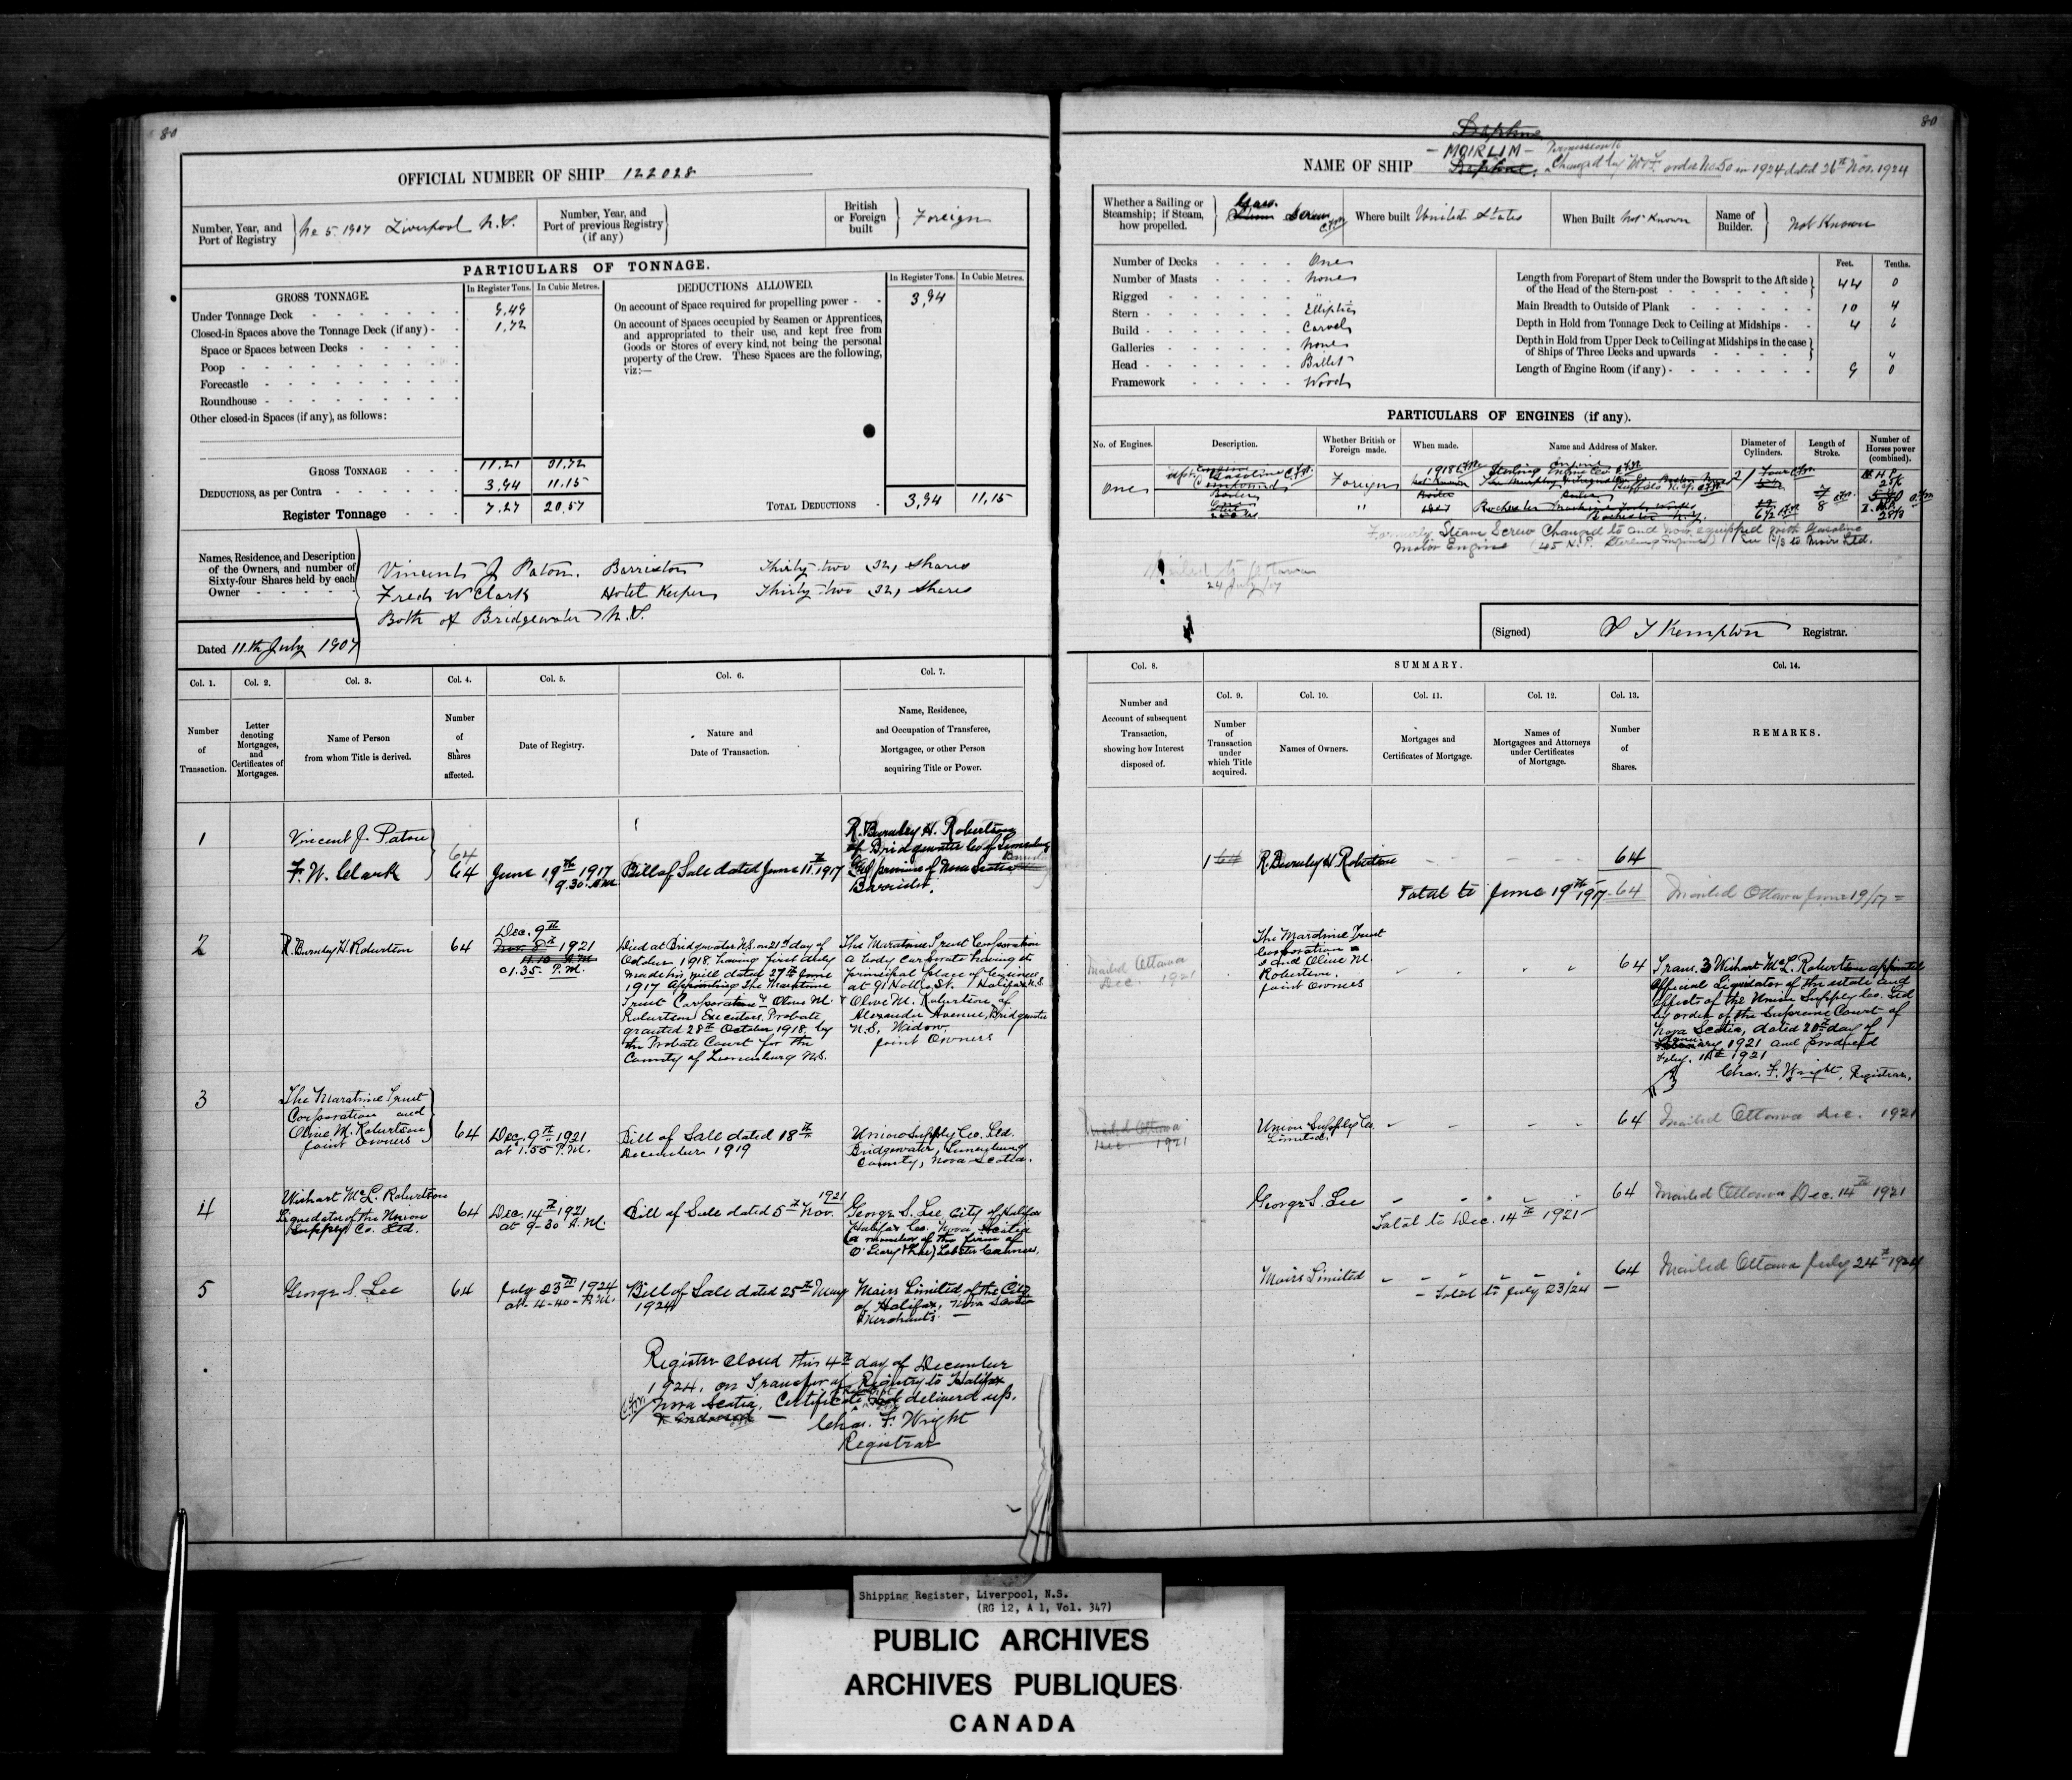 80
OFFICIAL NUMBER OF SHIP 122028
Number, Year, and
Port of Registry
No 5. 1907 Liverpool N.S.
Number, Year, and
Port of previous Registry
(if any)
British
or Foreign
built
Foreign
PARTICULARS OF TONNAGE.
GROSS TONNAGE.
In Register Tons. In Cubic Metres.
Under Tonnage Deck 9,49
Closed-in Spaces above the Tonnage Deck (if any) 1,72
Space or Spaces between Decks
Poop
Forecastle
Roundhouse
Other closed-in Spaces (if any), as follows:
GROSS TONNAGE 11,21 31,72
DEDUCTIONS, as per Contra 3,94 11,15
Register Tonnage 7.27 20,57
DEDUCTIONS ALLOWED.
In Register Tons. In Cubic Metres.
On account of Space required for propelling power 3,94
On account of Spaces occupied by Seamen or Apprentices,
and appropriated to their use, and kept free from
Goods or Stores of every kind, not being the personal
property of the Crew. These Spaces are the following,
viz:—
TOTAL DEDUCTIONS 3,94 11,15
Names, Residence, and Description
of the Owners, and number of
Sixty-four Shares held by each
Owner
Vincent J Paton, Barrister Thirty two (32) Shares
Fred W Clark Hotel Keeper Thirty-two (32) Shares
Both of Bridgewater N.S.
Dated 11th July 1907
Col. 1. Col. 2. Col. 3. Col. 4. Col. 5. Col. 6. Col. 7.
Number
of
Transaction.
Letter
denoting
Mortgages,
and
Certificates of
Mortgages.
Name of Person
from whom Title is derived.
Number
of
Shares
affected.
Date of Registry.
Nature and
Date of Transaction.
Name, Residence,
and Occupation of Transferee,
Mortgagee, or other Person
acquiring Title or Power.
1
Vincent J. Paton
F. W. Clark
64
64
June 19th 1917
9.30. A.M.
Bill of Sale dated June 11th 1917
R. Burnley H. Robertson
of Bridgewater Co of Lunenburg
province of Nova Scotia
Barrister.
2
R. Burnley H. Robertson
64
Dec. 9th
1921
1.35. P.M.
Died at Bridgewater N.S. on 21st day of
October 1918, having first duly
made his will dated 27th June
1917 appointing The Maratime
Trust Corporation & Olive M.
Robertson Executors. Probate
granted 28th October 1918, by
the Probate Court for the
County of Lunenburg N.S.
The Maratime Trust Corporation
a body corporate having its
principal place of business
at 91 Hollis St. Halifax N.S
& Olive M. Robertson of
Alexandra Avenue, Bridgewater
N.S, Widow.
joint Owners
3
The Maratime Trust
Corporation and
Olive M. Robertson
joint owners
64
Dec. 9th 1921
at 1.55 P.M.
Bill of Sale dated 18th
December 1919
Union Supply Co. Ltd.
Bridgewater, Lunenburg
County, Nova Scotia.
4
Wishart McL. Robertson
Liquidator of the Union
Supply Co. Ltd.
64
Dec. 14th 1921
at 9-30 A.M.
1921
Bill of Sale dated 5th Nov.
George S. Lee, City of Halifax
Halifax Co. Nova Scotia
(a member of the firm of
O'Leary & Lee) Lobster Canners.
5
George S. Lee
64
July 23rd 1924
at 4-40-P.M.
Bill of Sale dated 25th May
1924
Moirs Limited of the City
of Halifax, Nova Scotia
Merchants. —
Register closed this 4th day of December
1924, on Transfer of Registry to Halifax
Nova Scotia. Certificate delivered up.
Chas. F. Wright
Registrar
80
Daphne
NAME OF SHIP - MOIRLIM -
Daphne.
Permission to
Changed by order No 50 in 1924 dated 26th Nov. 1924
Whether a Sailing or
Steamship; if Steam,
how propelled.
Gas.
Steam Screw
Where built United States
When Built Not Known
Name of
Builder.
Not Known
Number of Decks One
Number of Masts None
Rigged "
Stern Elliptic
Build Carvel
Galleries None
Head Billet
Framework Wood
Feet. Tenths.
Length from Forepart of Stem under the Bowsprit to the Aft side
of the Head of the Stern-post 44 0
Main Breadth to Outside of Plank 10 4
Depth in Hold from Tonnage Deck to Ceiling at Midships 4 6
Depth in Hold from Upper Deck to Ceiling at Midships in the case
of Ships of Three Decks and upwards "
Length of Engine Room (if any) 9 0
PARTICULARS OF ENGINES (if any).
No. of Engines. Description. Whether British or
Foreign made. When made. Name and Address of Maker. Diameter of
Cylinders. Length of
Stroke. Number of
Horses power
(combined).
One
Gasoline
Compound
Boiler
Foreign
"
1918
Not Known
Boiler
1907
Sterling Engine Co.
Buffalo N.Y.
Boiler
Rochester Machine Tool Works
Rochester N.Y.
Four
8
Formerly Steam Screw Changed to and now equipped with Gasoline
Motor Engine (45 H.P. Sterling Engine) See B/S to Moirs Ltd.
Mailed to Ottawa
24 July/07
(Signed) Kempton Registrar.
SUMMARY.
Col. 8. Col. 9. Col. 10. Col. 11. Col. 12. Col. 13. Col. 14.
Number and
Account of subsequent
Transaction,
showing how Interest
disposed of.
Number
of
Transaction
under
which Title
acquired.
Names of Owners.
Mortgages and
Certificates of Mortgage.
Names of
Mortgagees and Attorneys
under Certificates
of Mortgage.
Number
of
Shares.
REMARKS.
1 64 R. Burnley H Robertson 64
Total to June 19th 1917 - 64 Mailed Ottawa June 19/17 =
Mailed Ottawa
Dec. 1921
The Maratime Trust
Corporation
and Olive M.
Robertson.
joint Owners
64
Trans. 3 Wishart McL. Robertson appointed
Official Liquidator of the estate and
effects of the Union Supply Co. Ltd
by order of the Supreme Court of
Nova Scotia, dated 20th day of
January 1921 and produced
Feby. 11th 1921
Chas. F. Wright, Registrar.
Mailed Ottawa
Dec. 1921
Union Supply Co.
Limited.
64 Mailed Ottawa Dec. 1921
George S. Lee 64 Mailed Ottawa Dec. 14th 1921
Total to Dec. 14th 1921 -
Moirs Limited 64 Mailed Ottawa July 24th 1924
- Total to July 23/24 —
Shipping Register, Liverpool, N.S.
(RG 12, A 1, Vol. 347)
PUBLIC ARCHIVES
ARCHIVES PUBLIQUES
CANADA